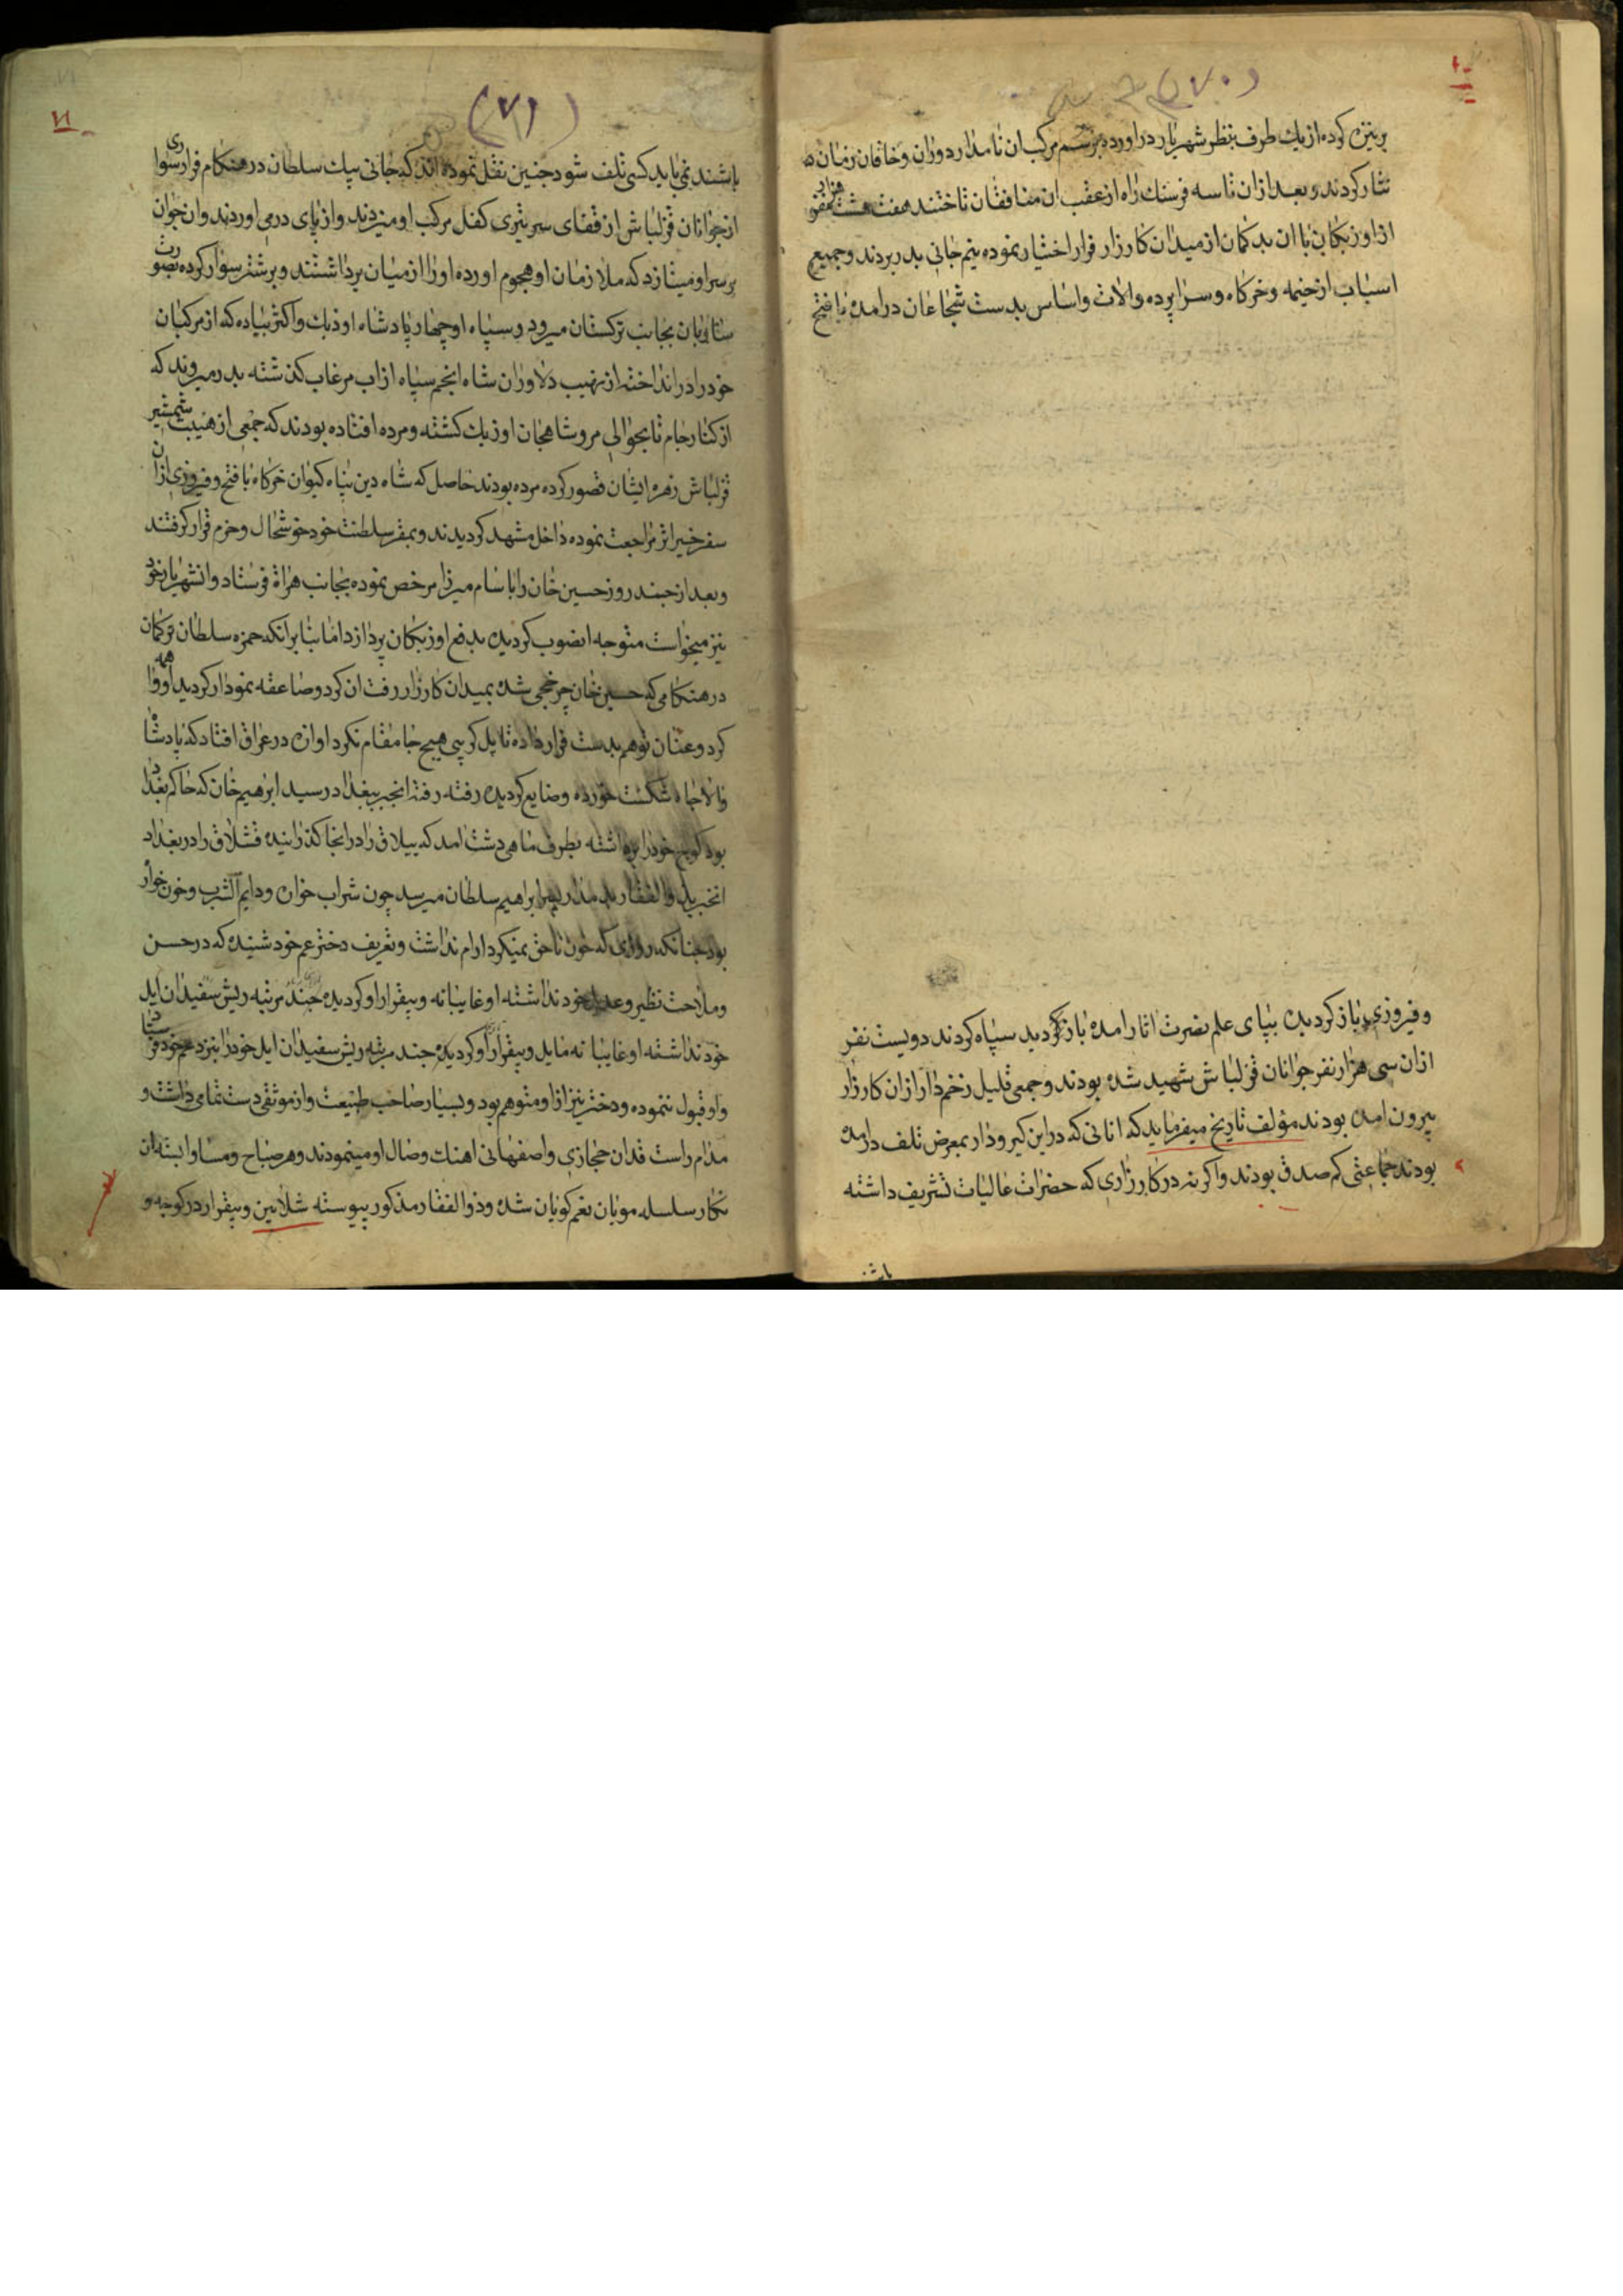 (۷۰)
بر نیزه کرده از یك طرف بنظر شهریار دراورده برسم مرکب ان نامدار دوران و خاقان زمان
نثار کردند و بعد ازان تا سه فرسنك راه از عقب ان منافقان تاختند هفت هشت هزار نفر
از اوزبکان با ان بد کمان از میدان کارزار فرار اختیار نموده نیم جانی بدر بردند و جمیع
اسباب از خیمه و خرکاه و سراپرده والات و اساس بدست شجاعان درامده با فتح
و فیروزی باز کردیده بپای علم نصرت اثار امده باز کردید سپاه کردند دویست نفر
ازان سی هزار نفر جوانان قزلباش شهید شده بودند و جمعی قلیل زخم دار ازان کارزار
بیرون امده بودند مؤلف تاریخ میفرماید که انانی که دراین کیرودار بمعرض تلف درامده
بودند جماعتی کم صدق بودند و اکر نه در کارزاری که حضرات عالیات تشریف داشته
باشند
(۷۱)
۷۱
باشند نمی باید کسی تلف شود چنین نقل نموده اند که جانی بیك سلطان در هنکام فرار سواری
از جوانان قزلباش از قفای سر نیزی کفل مرکب او میزدند و از پای درمی اوردند وان جوان
بر سر او میتازد که ملازمان او هجوم اورده او را از میان برداشتند و بر شتر سوار کرده بصورت
ساربان بجانب ترکستان میرود و سپاه او چهار پادشاه اوزبك و اکثر پیاده که از مرکبان
خود را در انداخته از نهیب دلاوران شاه انجم سپاه از اب مرغاب کذشته بدر میروند که
از کنار جام تا بحوالی مرو شاهجان اوزبك کشته و مرده افتاده بودند که جمعی از هیبت شمشیر
قزلباش زهره ایشان قصور کرده مرده بودند حاصل که شاه دین پناه کیوان خرکاه با فتح و فیروزی ازان
سفر خیر اثر مراجعت نموده داخل مشهد کردیدند و بمقر سلطنت خود خوشحال و خرم قرار کرفتند
و بعد از چند روز حسین خان را با سام میرزا مرخص نموده بجانب هراة فرستاد وانشهریار خود
نیز میخواست متوجه انصوب کردیده بدفع اوزبکان پردازد اما بنا بر انکه حمزه سلطان ترکمان
در هنکامی که حسین خان چرخچی شده بمیدان کارزار رفت ان کرد و صاعقه نمودار کردید او واهمه
کرد و عنان توهم بدست فرار داده تا پل کرپی هیچ جا مقام نکرد اوازه در عراق افتاد که پادشاه
والاجاه شکست خورده و ضایع کردیده رفته رفته انخبر ببغداد رسید ابرهیم خان که حاکم بغداد
بود کوچ خود را برداشته بطرف ماهی دشت امد که ییلاق را درانجا کذرانیده قشلاق را در بغداد
انخبر بذوالفقار بد مدار پسر ابراهیم سلطان میرسد چون شراب خوان و دایم الشرب و خون خوار
بود چنانکه روزی که خون ناحق نمیکرد ارام نداشت و تعریف دختر عم خود شنیده که در حسن
و ملاحت نظیر و عدیل خود نداشته او غایبانه و بیقرار او کردیده چند مرتبه ریش سفیدان ایل
خود نداشته او غایبانه مایل و بیقرار او کردیده چند مرتبه ریش سفیدان ایل خود را بنزد عم خود فرستاد
و او قبول ننموده و دختر نیز ازاو متوهم بود و بسیار صاحب طبیعت و از موثقی دست تمامی داشت و
مدام راست قدان حجازی و اصفهانی اهنك وصال او مینمودند و هر صباح و مسا وابسته ان
نکار سلسله مویان نغم کویان شده و ذوالفقار مذکور پیوسته شلائین و بیقرار در کوچه و